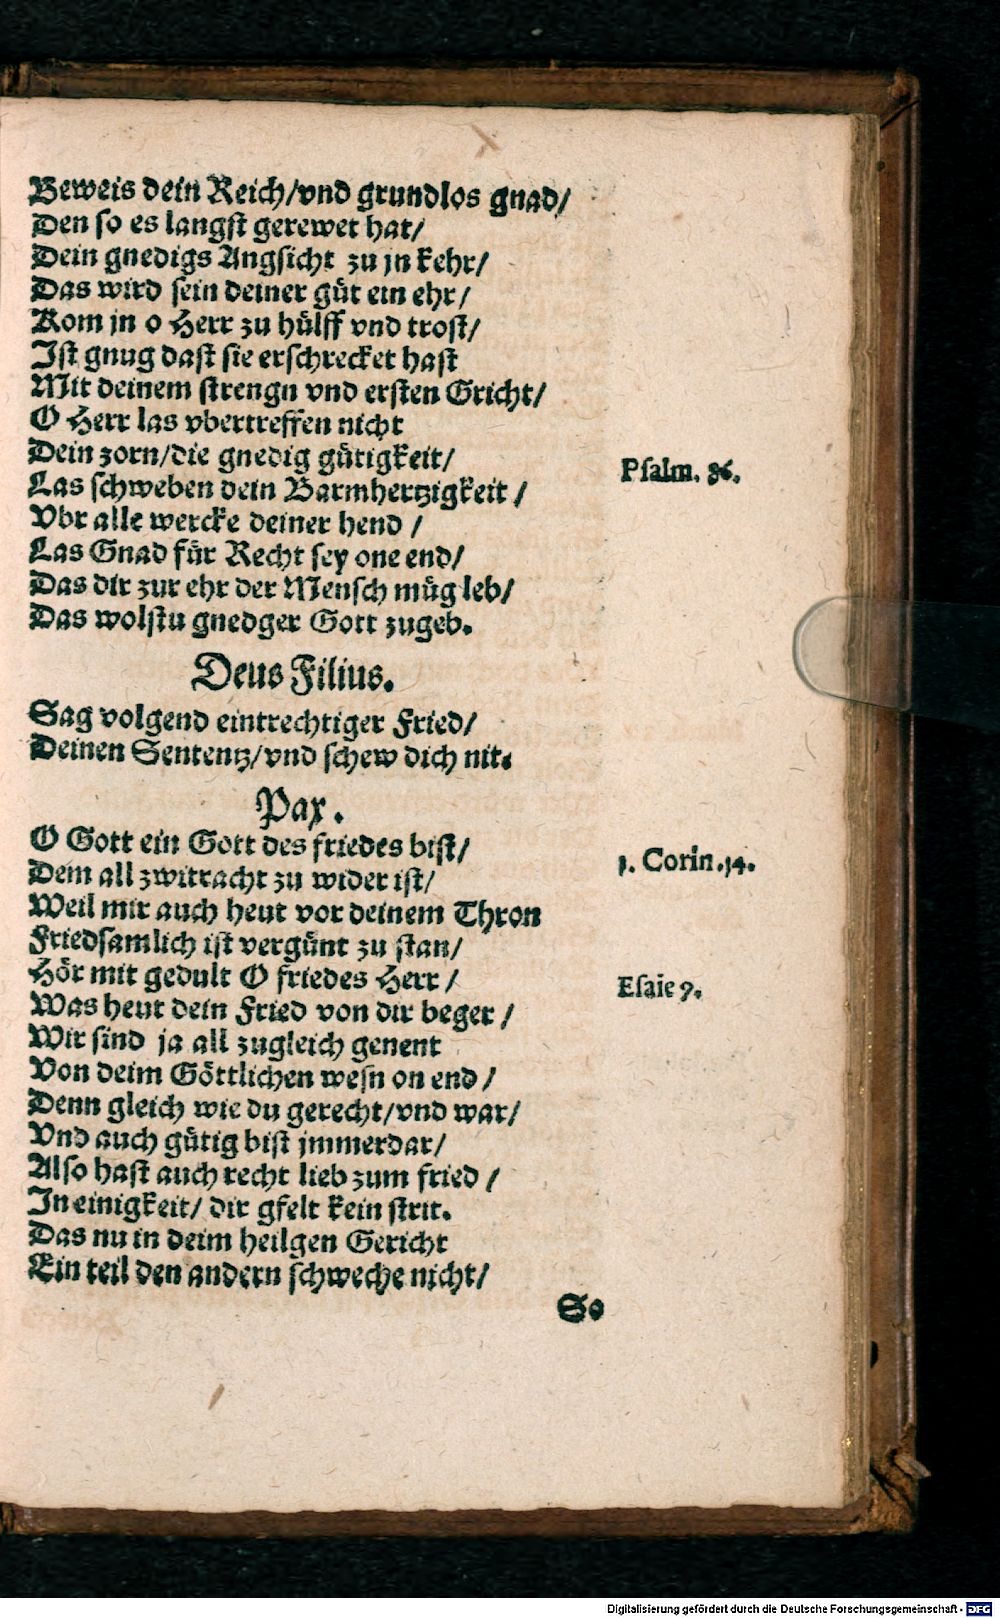 Beweis dein Reich/vnd grundlos gnad/
Den so es langst gerewet hat/
Dein gnedigs Angsicht zu jn kehr/
Das wird sein deiner güt ein ehr/
Kom jn o Herr zu hülff vnd trost/
Ist gnug dast sie erschrecket hast
Mit deinem strengn vnd ersten Gricht/
O Herr las vbertreffen nicht
Dein zorn/die gnedig gütigkeit/
Psalm. 36.
Las schweben dein Barmhertzigkeit /
Vbr alle wercke deiner hend /
Las Gnad für Recht sey one end/
Das dir zur ehr der Mensch müg leb/
Das wolstu gnedger Gott zugeb.
Deus Filius.
Sag volgend eintrechtiger Fried/
Deinen Sententz/vnd schew dich nit.
Pax.
O Gott ein Gott des friedes bist/
1. Corin.14.
Dem all zwitracht zu wider ist/
Weil mir auch heut vor deinem Thron
Friedsamlich ist vergünt zu stan/
Hör mit gedult O friedes Herr /
Esaie 9.
Was heut dein Fried von dir beger /
Wir sind ja all zugleich genent
Von deim Göttlichen wesn on end /
Denn gleich wie du gerecht/vnd war/
Vnd auch gütig bist jmmerdar/
Also hast auch recht lieb zum fried /
In einigkeit/ dir gfelt kein strit.
Das nu in deim heilgen Gericht
Ein teil den andern schweche nicht/
So
Digitalisierung gefördert durch die Deutsche Forschungsgemeinschaft - DFG